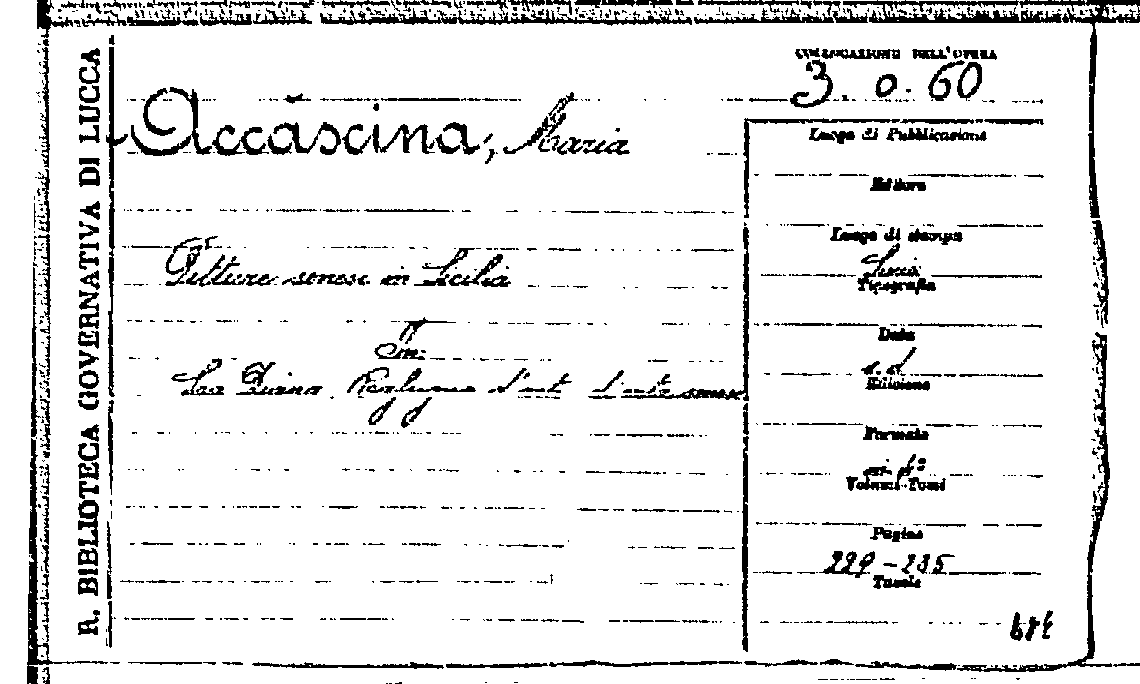 R. BIBLIOTECA GOVERNATIVA DI LUCCA
COLLOCAZIONE DELL'OPERA
3. o. 60
Accascina, Maria
Pitture senesi in Sicilia
In:
La Diana. Rassegna d'arte senese
Luogo di Pubblicazione
Editore
Luogo di stampa
Siena
Tipografia
Data
s. d.
Edizione
Formato
in 4°
Volumi-Tomi
Pagine
229-235
Tavole